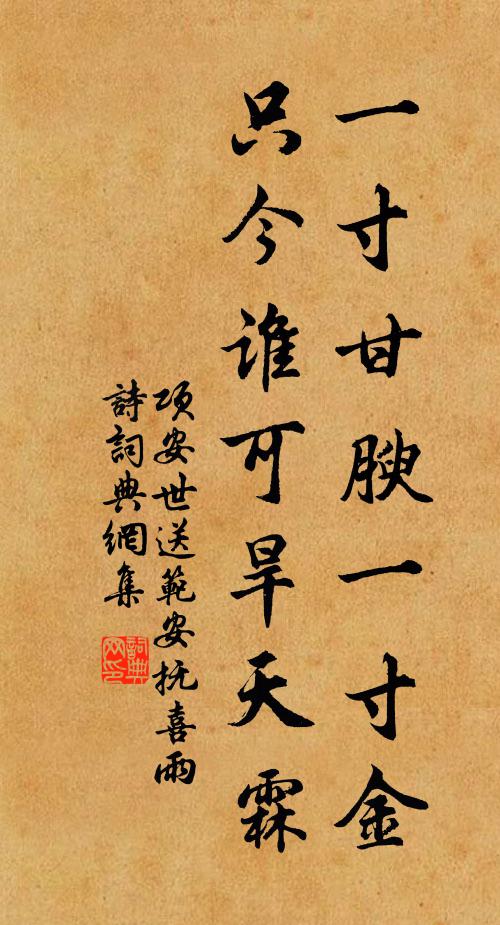 一寸甘腴一寸金
只今谁可旱天霖
项安世送範安抚喜雨
詩詞典網集
詞典网印